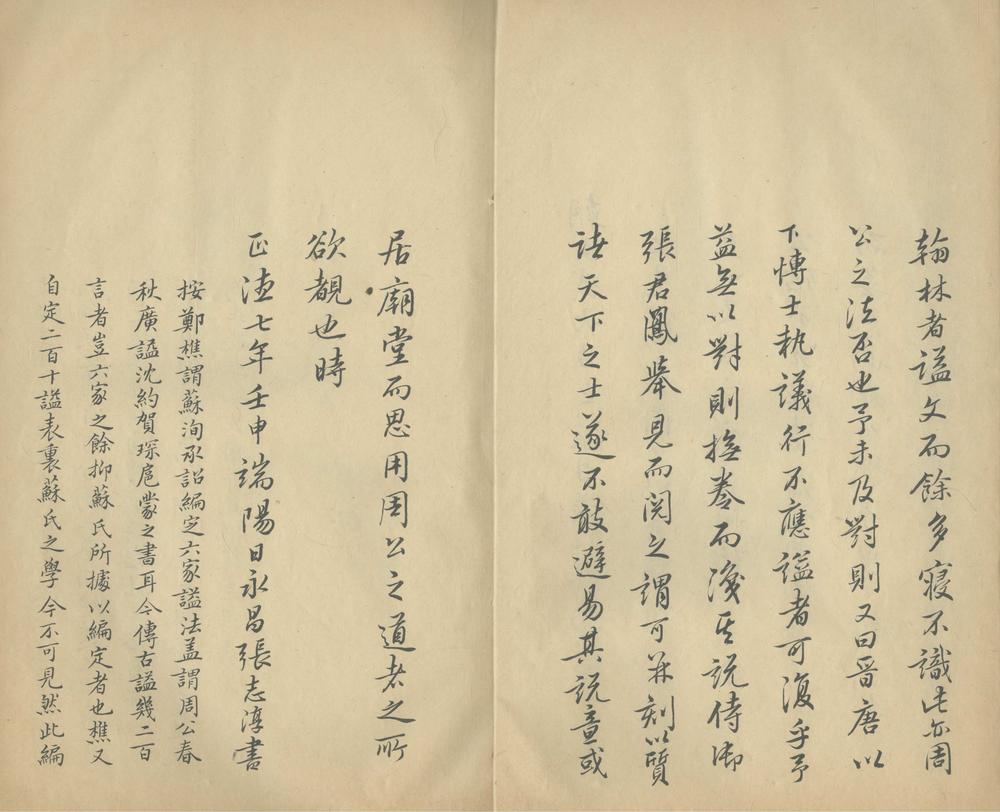 翰林者謚文而餘多寢不識此亦周
公之法否也予未及對則又曰晉唐以
下博士執議行不應謚者可復乎予
益無以對則撫卷而淺其說侍御
張君鳳舉見而閱之謂可并刻以質
諸天下之士遂不敢避易其說意或
居廟堂而思用周公之道者之所
欲覩也時
正德七年壬申端陽日永昌張志淳書
按鄭樵謂蘇洵承詔編定六家謚法蓋謂周公春
秋廣謚沈約賀琛扈蒙之書耳今傳古謚幾二百
言者豈六家之餘抑蘇氏所據以編定者也樵又
自定二百十謚表裏蘇氏之學今不可見然此編